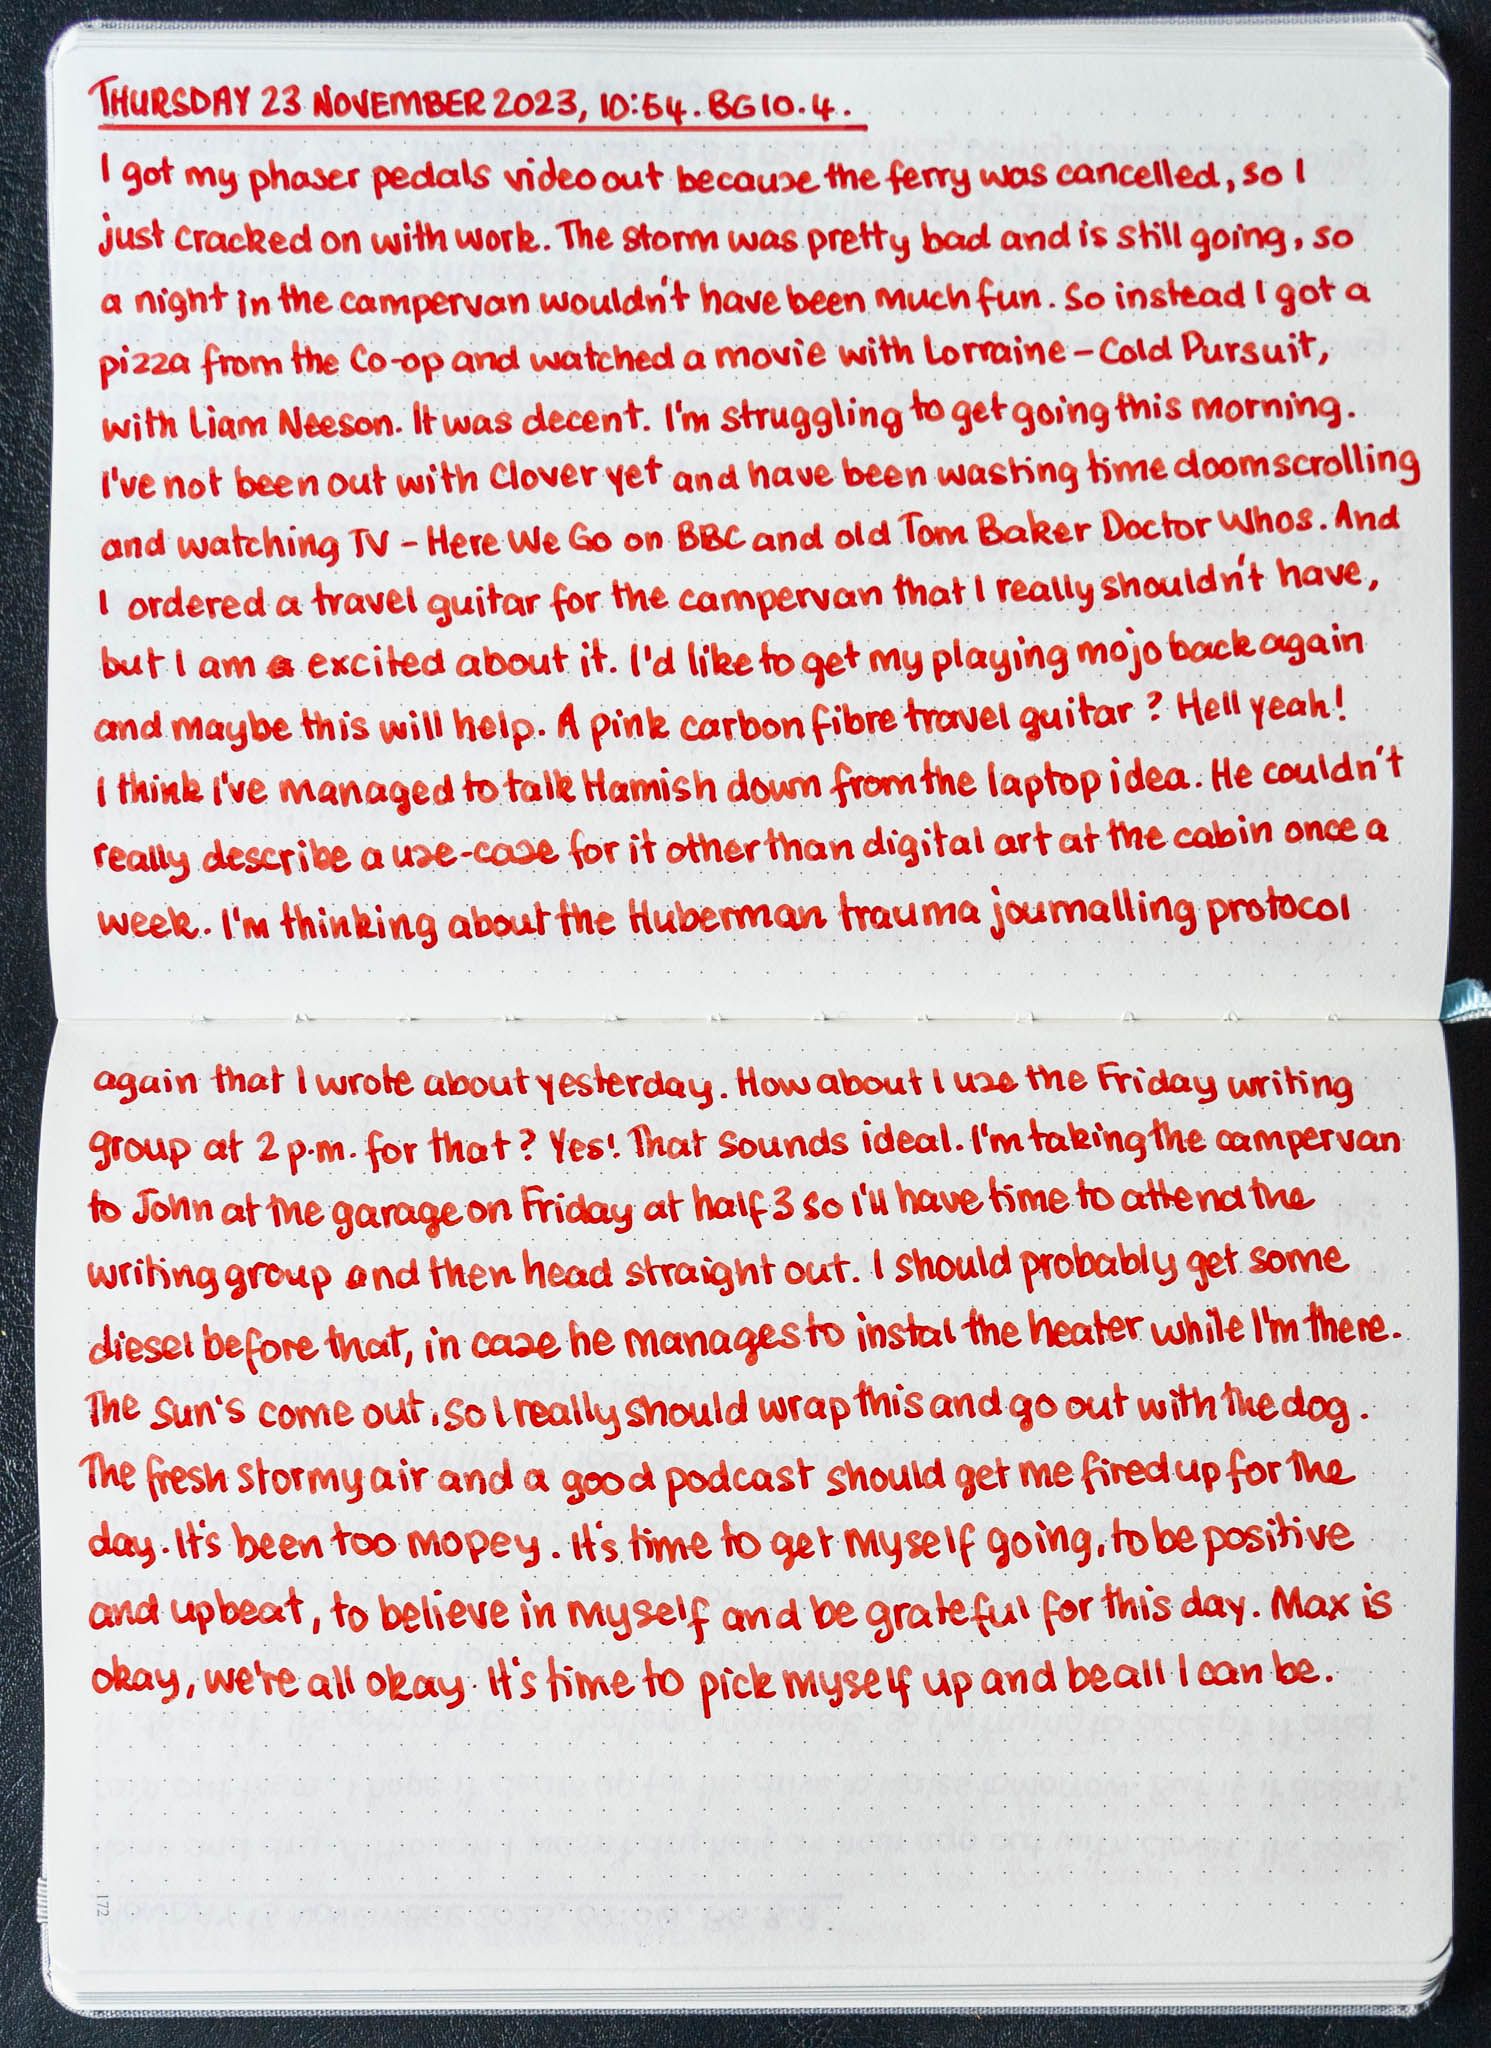 THURSDAY 23 NOVEMBER 2023, 10:54. BG 10.4.
I got my phaser pedals video out because the ferry was cancelled, so I
just cracked on with work. The storm was pretty bad and is still going, so
a night in the campervan wouldn't have been much fun. So instead I got a
pizza from the Co-op and watched a movie with Lorraine – Cold Pursuit,
with Liam Neeson. It was decent. I'm struggling to get going this morning.
I've not been out with Clover yet and have been wasting time doomscrolling
and watching TV – Here We Go on BBC and old Tom Baker Doctor Whos. And
I ordered a travel guitar for the campervan that I really shouldn't have,
but I am excited about it. I'd like to get my playing mojo back again
and maybe this will help. A pink carbon fibre travel guitar? Hell yeah!
I think I've managed to talk Hamish down from the laptop idea. He couldn't
really describe a use-case for it other than digital art at the cabin once a
week. I'm thinking about the Huberman trauma journalling protocol
again that I wrote about yesterday. How about I use the Friday writing
group at 2 p.m. for that? Yes! That sounds ideal. I'm taking the campervan
to John at the garage on Friday at half 3 so I'll have time to attend the
writing group and then head straight out. I should probably get some
diesel before that, in case he manages to instal the heater while I'm there.
The sun's come out, so I really should wrap this and go out with the dog.
The fresh stormy air and a good podcast should get me fired up for the
day. It's been too mopey. It's time to get myself going, to be positive
and upbeat, to believe in myself and be grateful for this day. Max is
okay, we're all okay. It's time to pick myself up and be all I can be.
172